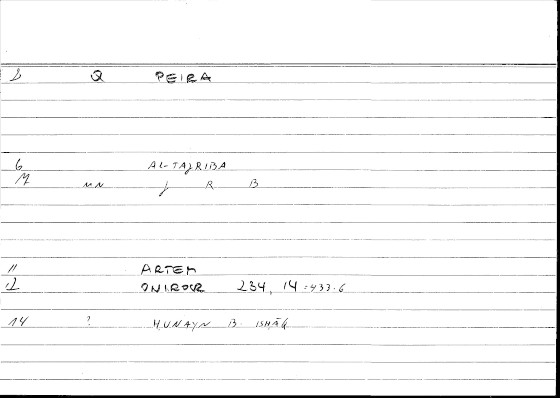 2 Q PEIRA
6 AL-TAJRIBA
7 NN J R B
11 ARTEM
12 ONIROCR 234, 14 = 433.6
14 ? HUNAYN B. ISHĀQ